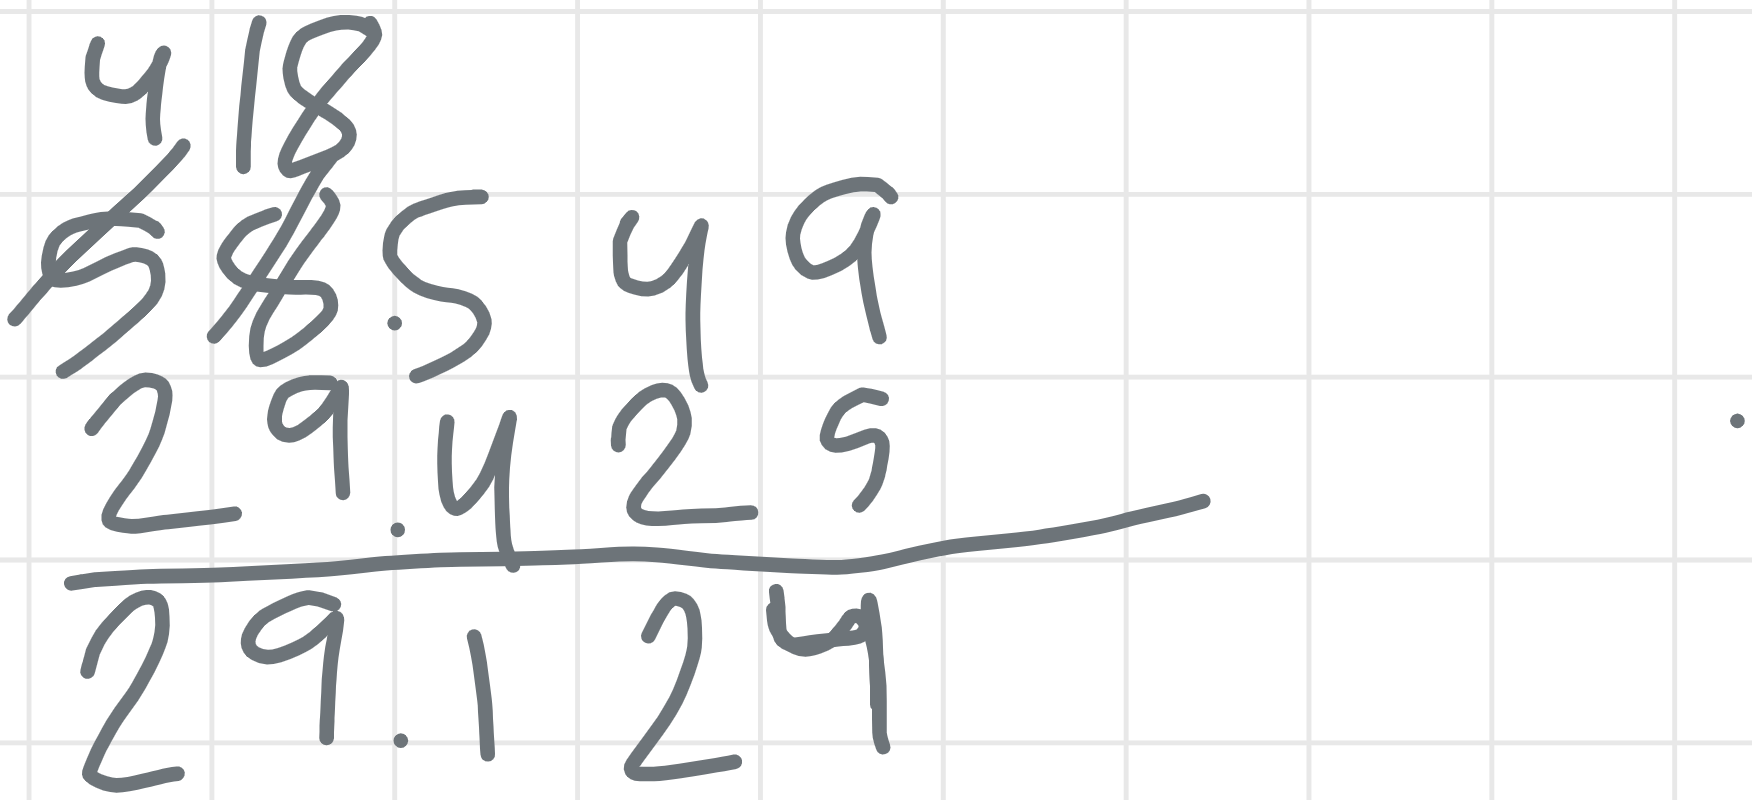 4 18
58.549
29.425
29.124